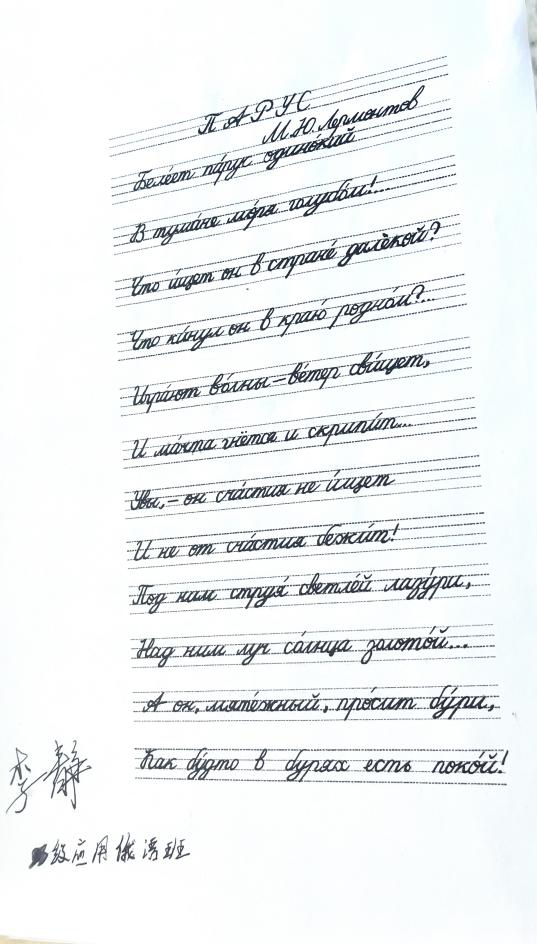 ПАРУС
М.Ю. Лермонтов
Беле́ет па́рук одино́кий
В тума́не мо́ря голубо́м!...
Что и́щет он в стране́ далёкой?
Что ки́нул он в краю́ родно́м?...
Игра́ют во́лны – ве́тер сви́щет,
И ма́чта гнётся и скрипи́т...
Увы, – он сча́стия не и́щет
И не от сча́стия бежи́т!
Под ним струя́ светле́й лазу́ри,
Над ним луч со́лнца золото́й...
А он, мяте́жный, про́сит бу́ри,
Как бу́дто в бурях есть поко́й!
李静
级应用俄语班